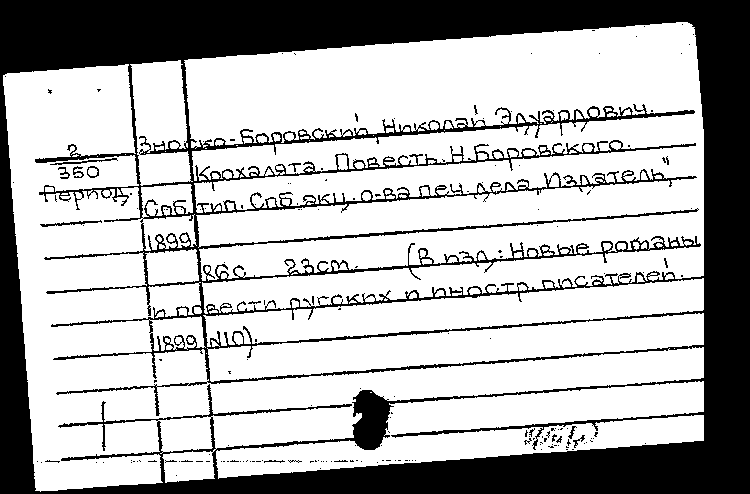 Зноско-Боровский, Николай Эдуардович.
2
360
Период.
Крохалята. Повесть. Н. Боровского.
Спб, тип. Спб. акц. о-ва печ. дела „Издатель",
1899.
86с. 23см. (В изд.: Новые романы
и повести русских и иностр. писателей.
1899, №10).